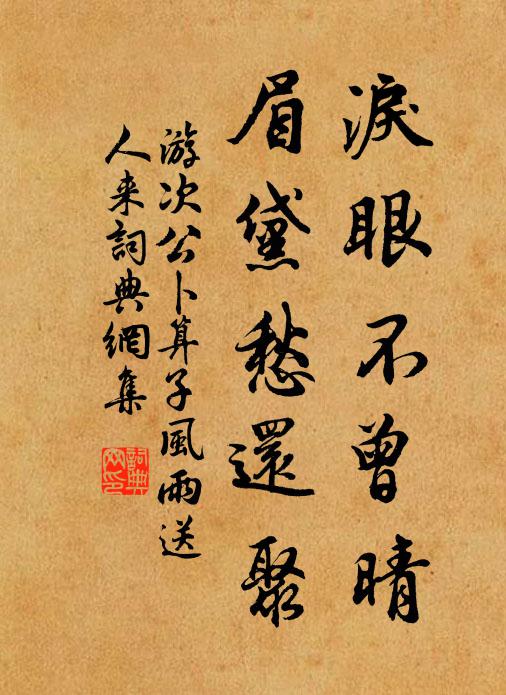 淚眼不曾晴
眉黛愁還聚
游次公卜算子風雨送
人来詞典網集
詞典網印